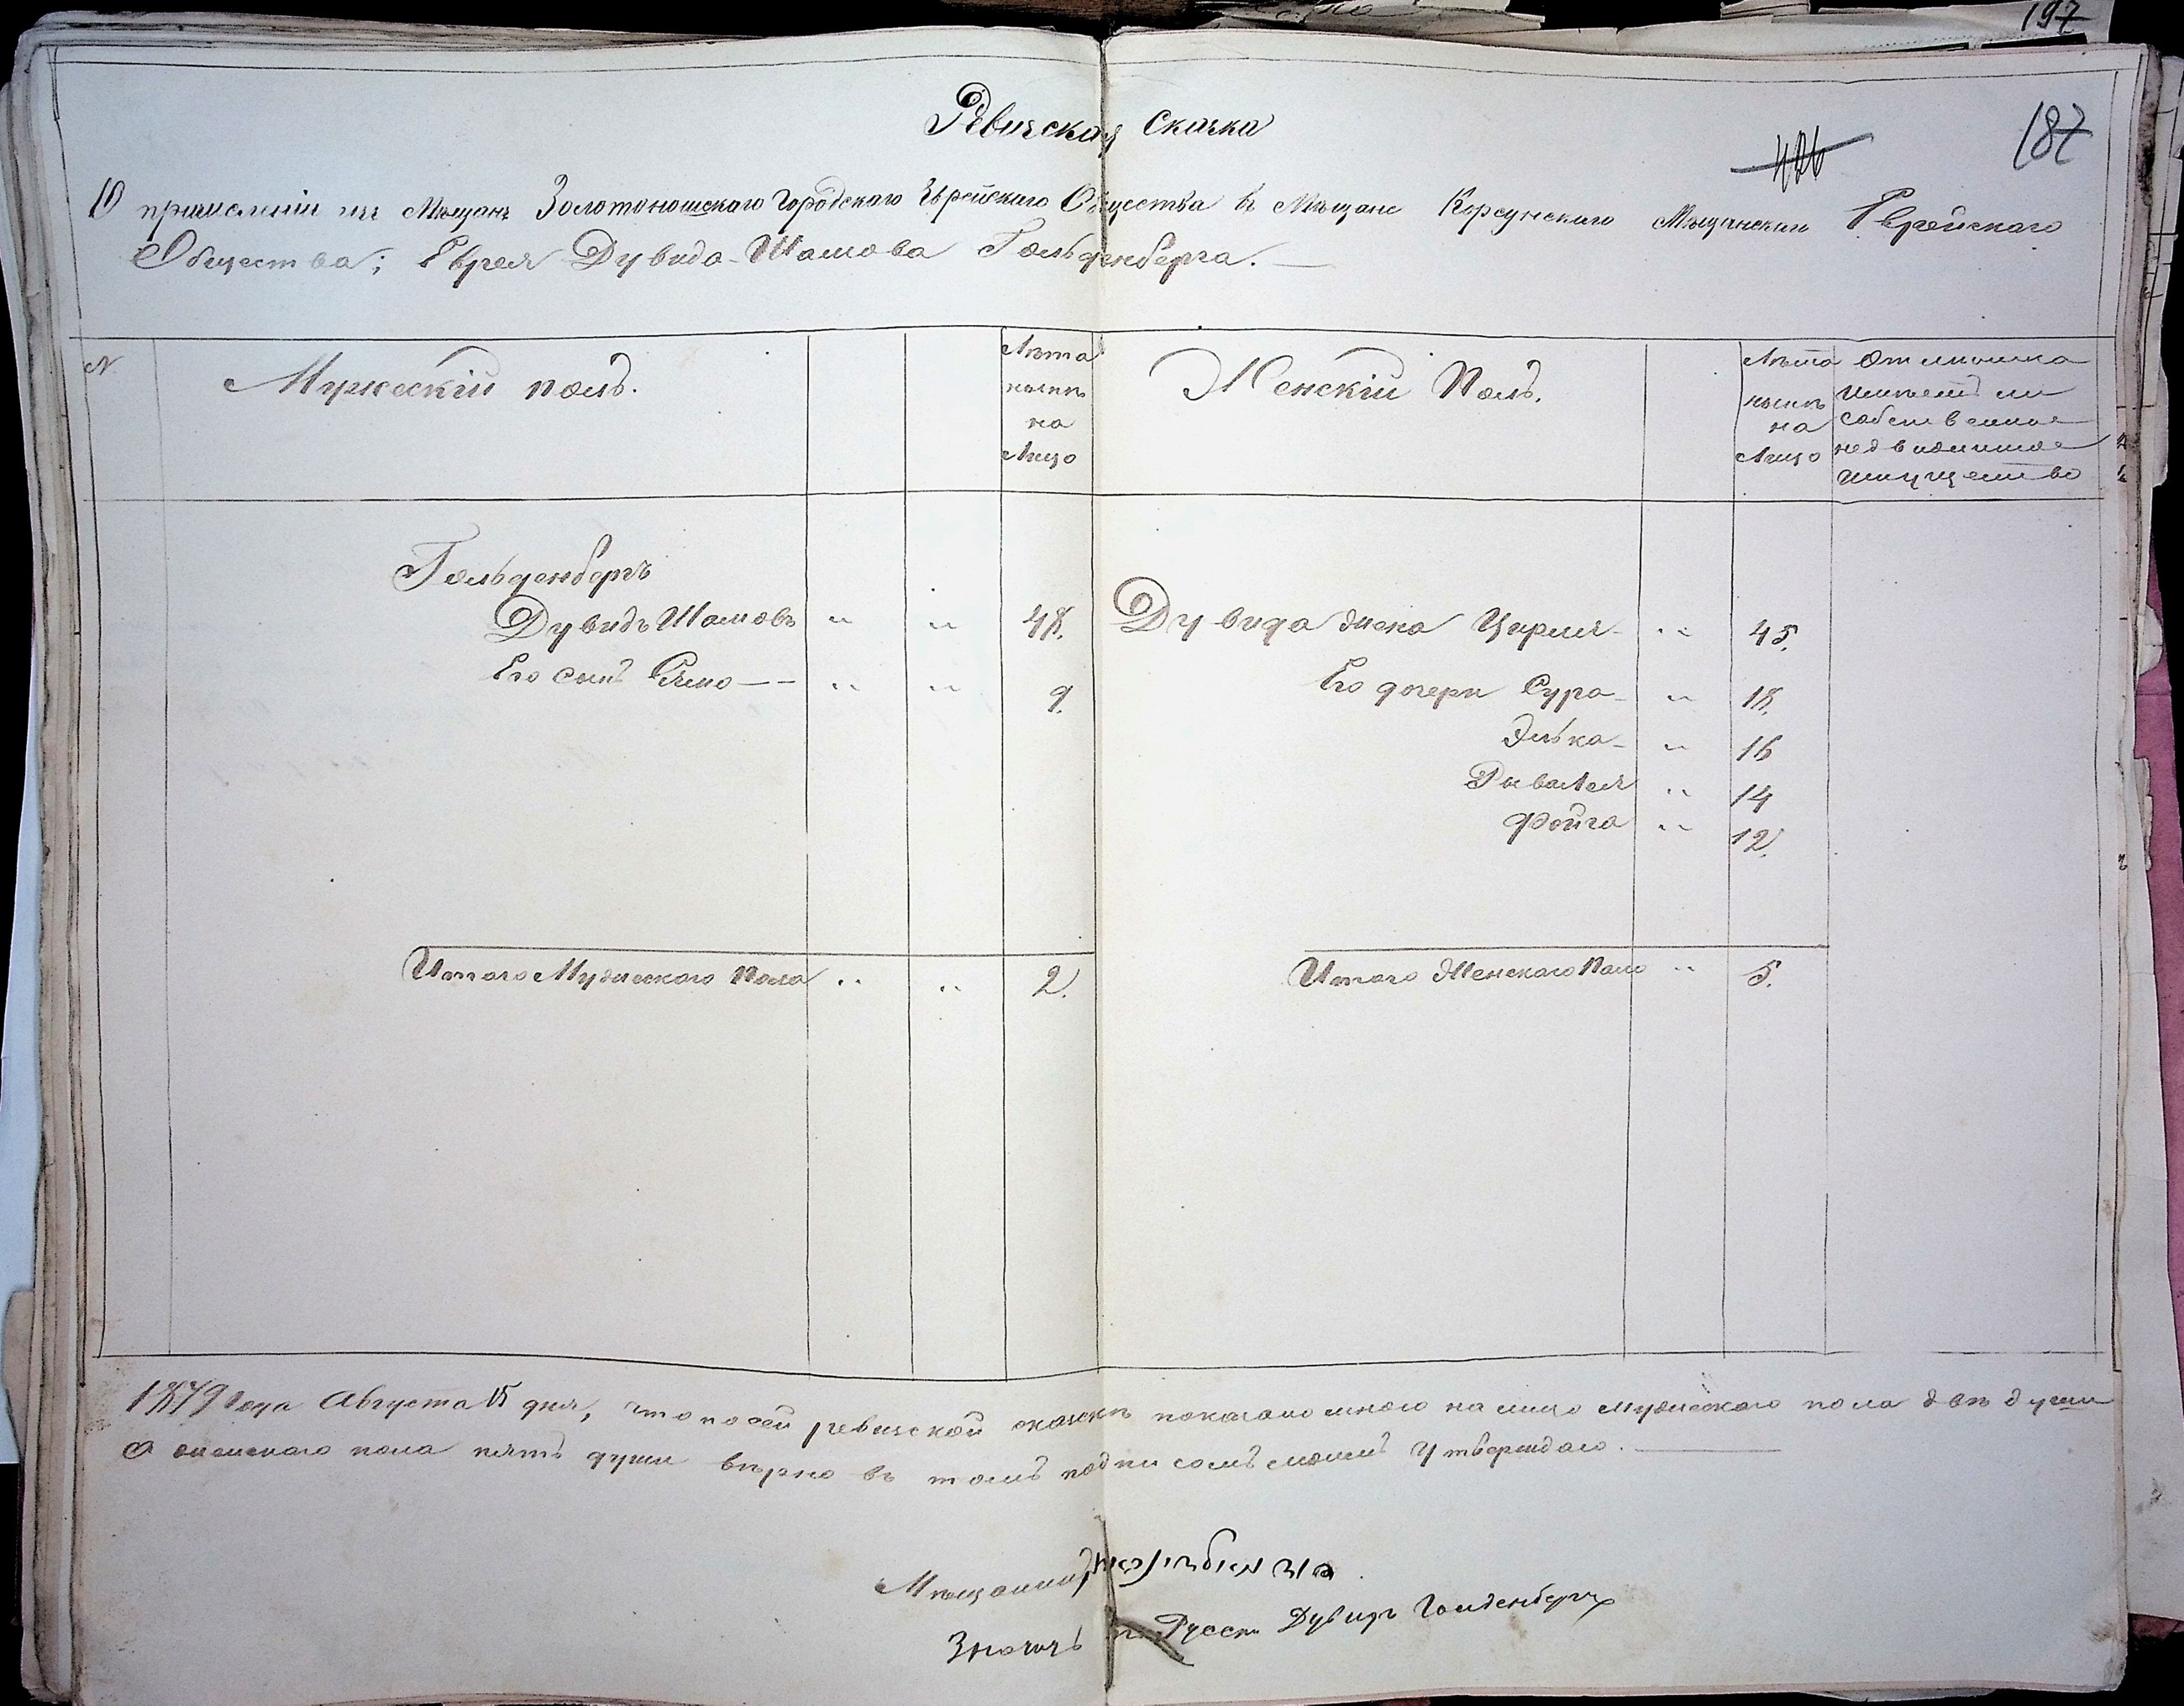 197
187
Ревизская Сказка
О причисленіи изъ Мѣщанъ Золотоношского Городского Еврейского Общества въ Мѣщане Корсунского Мѣщанского Еврейского
Общества; Еврея Дувида Шамова Гольденберга.
N
Мужескій полъ.
Лѣта нынѣ на лицо
Женскій Полъ.
Лѣта нынѣ на лицо
Отмѣтка имѣетъ ли собственное недвижимое имущество
Гольденбергъ
Дувидъ Шамовъ " " 48.
Его сынъ " " 9.
Дувида жена Цирля " 45.
Его дочери Сура " 18.
Элька " 16
Рывалея " 14
Фейга " 12.
Итого Мужеского Пола " " 2.
Итого Женского Пола " 5.
1879 года Августа 15 дня, что по сей ревизской сказкѣ показано мною на лицо мужеского пола двѣ души
а женского пола пять души вѣрно въ томъ подписомъ моимъ утверждаю.
Мѣщанинъ
Значитъ по Русски Дувидъ Голденбергъ